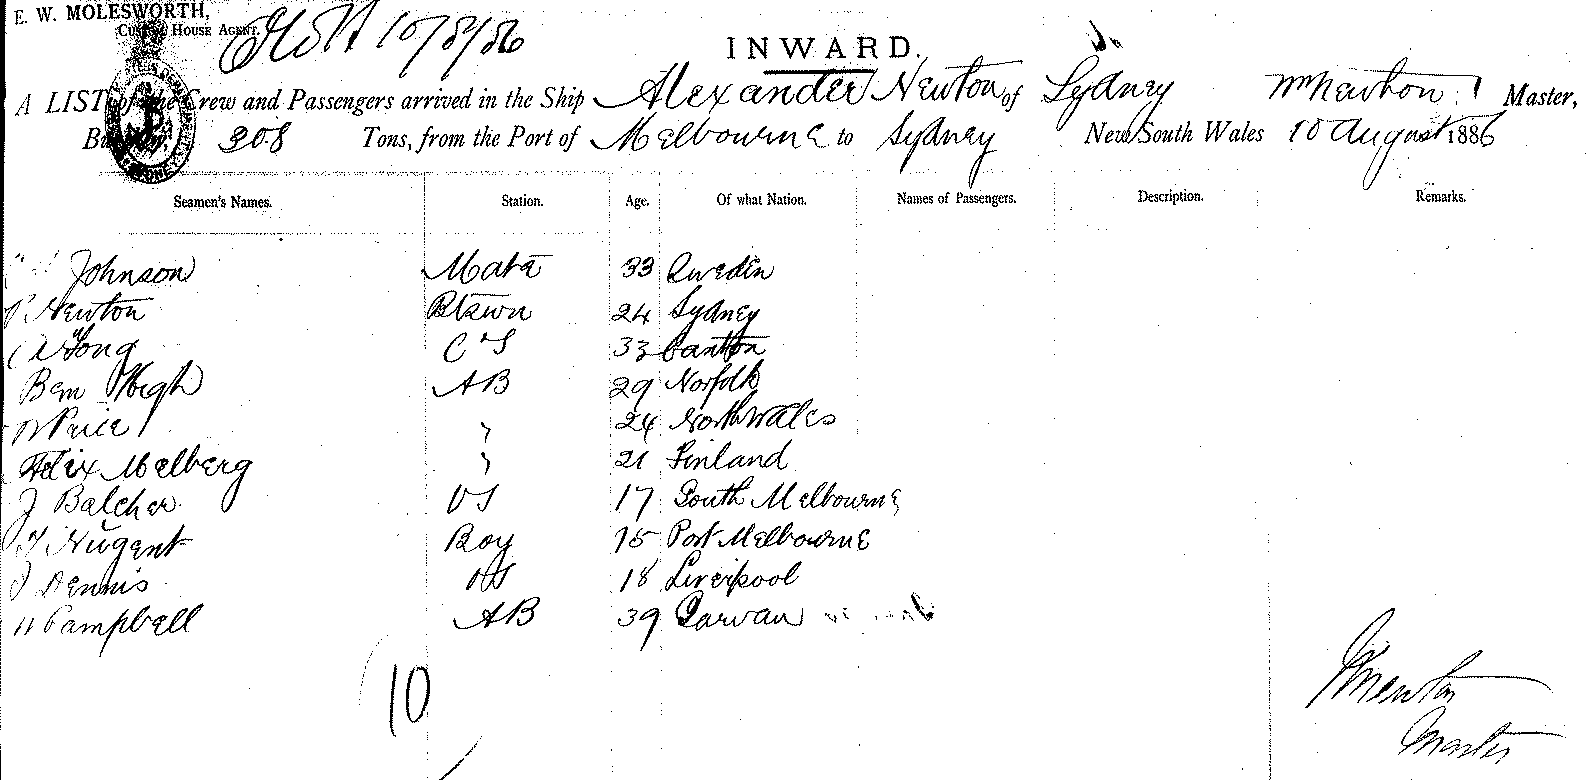 E. W. MOLESWORTH,
CUSTOM HOUSE AGENT.
10/8/86
INWARD.
A LIST of the Crew and Passengers arrived in the Ship Alexander Newton of Sydney Wm Newton Master,
Burthen, 308 Tons, from the Port of Melbourne to Sydney New South Wales 10 August 1886
Seamen's Names. Station. Age. Of what Nation. Names of Passengers. Description. Remarks.
Johnson Mate 33 Sweden
Newton 24 Sydney
C & S 33 Canton
Ben High AB 29 Norfolk
Price " 24 North Wales
Felix Melberg " 21 Finland
J Balcher OS 17 South Melbourne
J Nugent Boy 15 Port Melbourne
J Dennis OS 18 Liverpool
Campbell AB 39
10
Wm Newton
Master